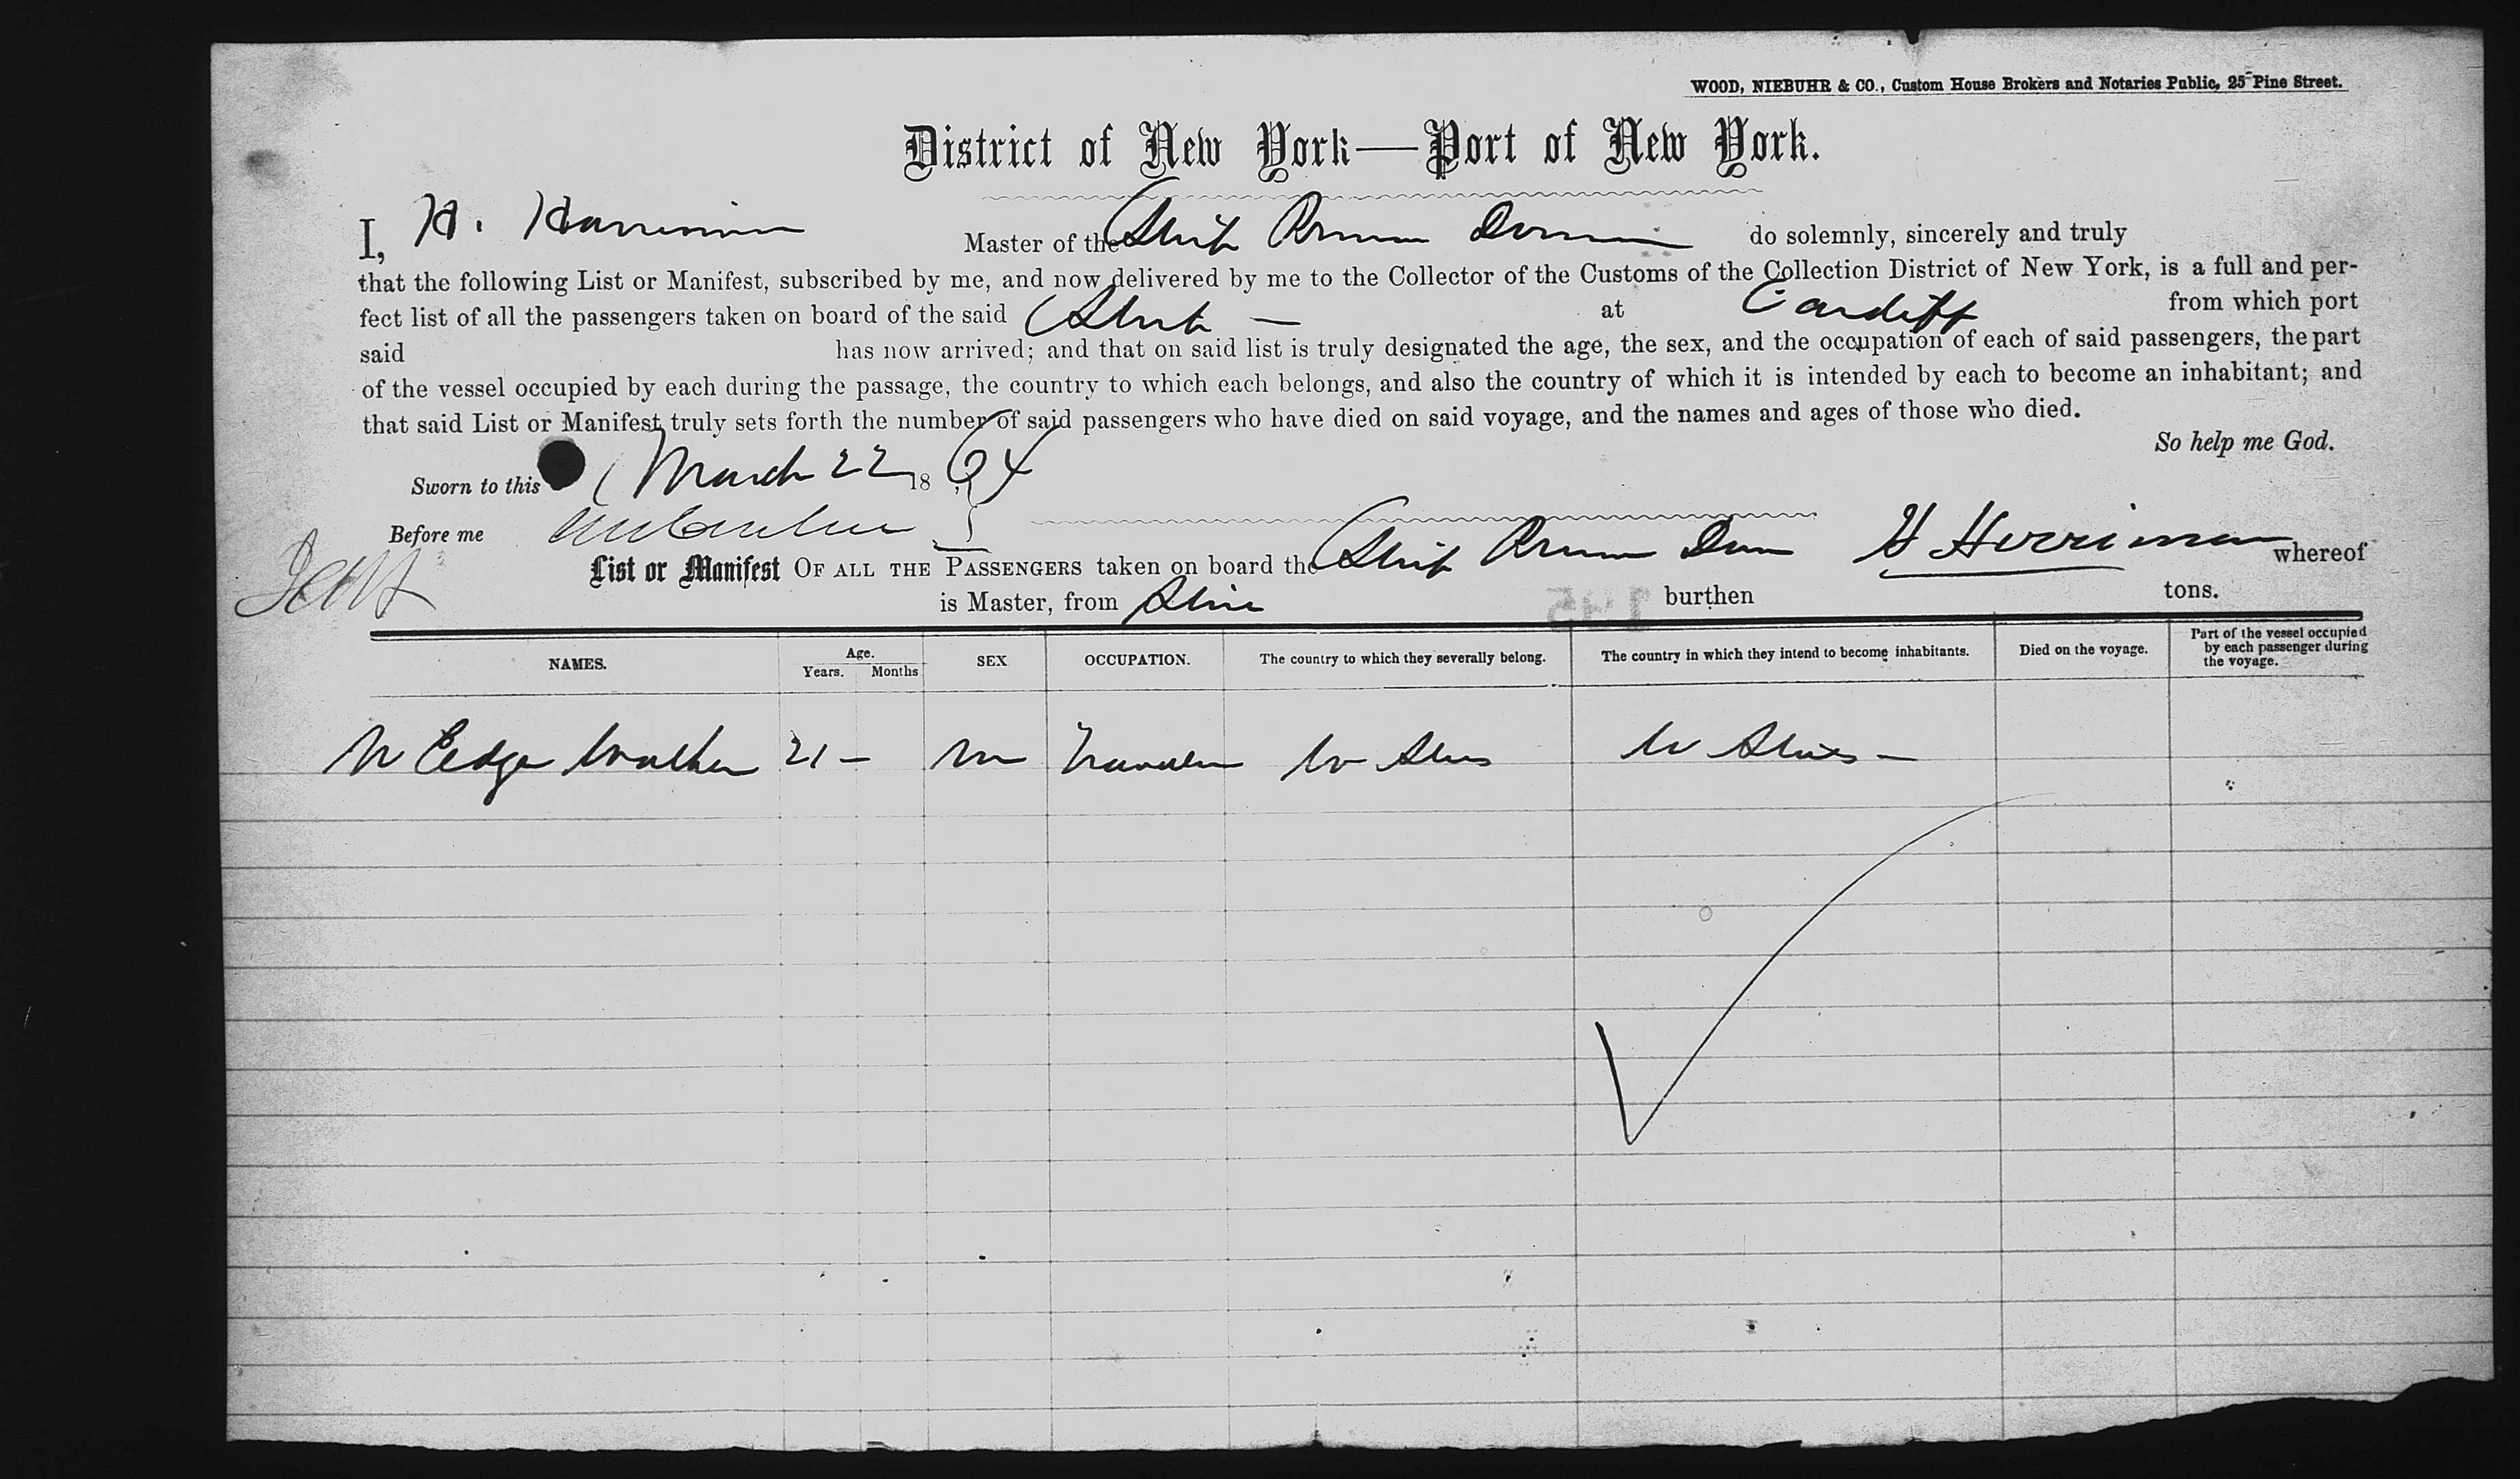 WOOD, NIEBUHR & CO., Custom House Brokers and Notaries Public, 25 Pine Street.
District of New York—Port of New York.
I, H. Harriman Master of the Ship do solemnly, sincerely and truly
that the following List or Manifest, subscribed by me, and now delivered by me to the Collector of the Customs of the Collection District of New York, is a full and per-
fect list of all the passengers taken on board of the said Ship — at Cardiff from which port
said has now arrived; and that on said list is truly designated the age, the sex, and the occupation of each of said passengers, the part
of the vessel occupied by each during the passage, the country to which each belongs, and also the country of which it is intended by each to become an inhabitant; and
that said List or Manifest truly sets forth the number of said passengers who have died on said voyage, and the names and ages of those who died.
So help me God.
Sworn to this March 22 1864
Before me
List or Manifest OF ALL THE PASSENGERS taken on board the Ship H Herriman whereof
is Master, from burthen tons.
NAMES. Age. Years. Months SEX OCCUPATION. The country to which they severally belong. The country in which they intend to become inhabitants. Died on the voyage. Part of the vessel occupied by each passenger during the voyage.
21 — m U States U States —